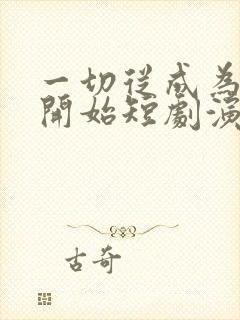 一切從成為
開始短劇演
古奇